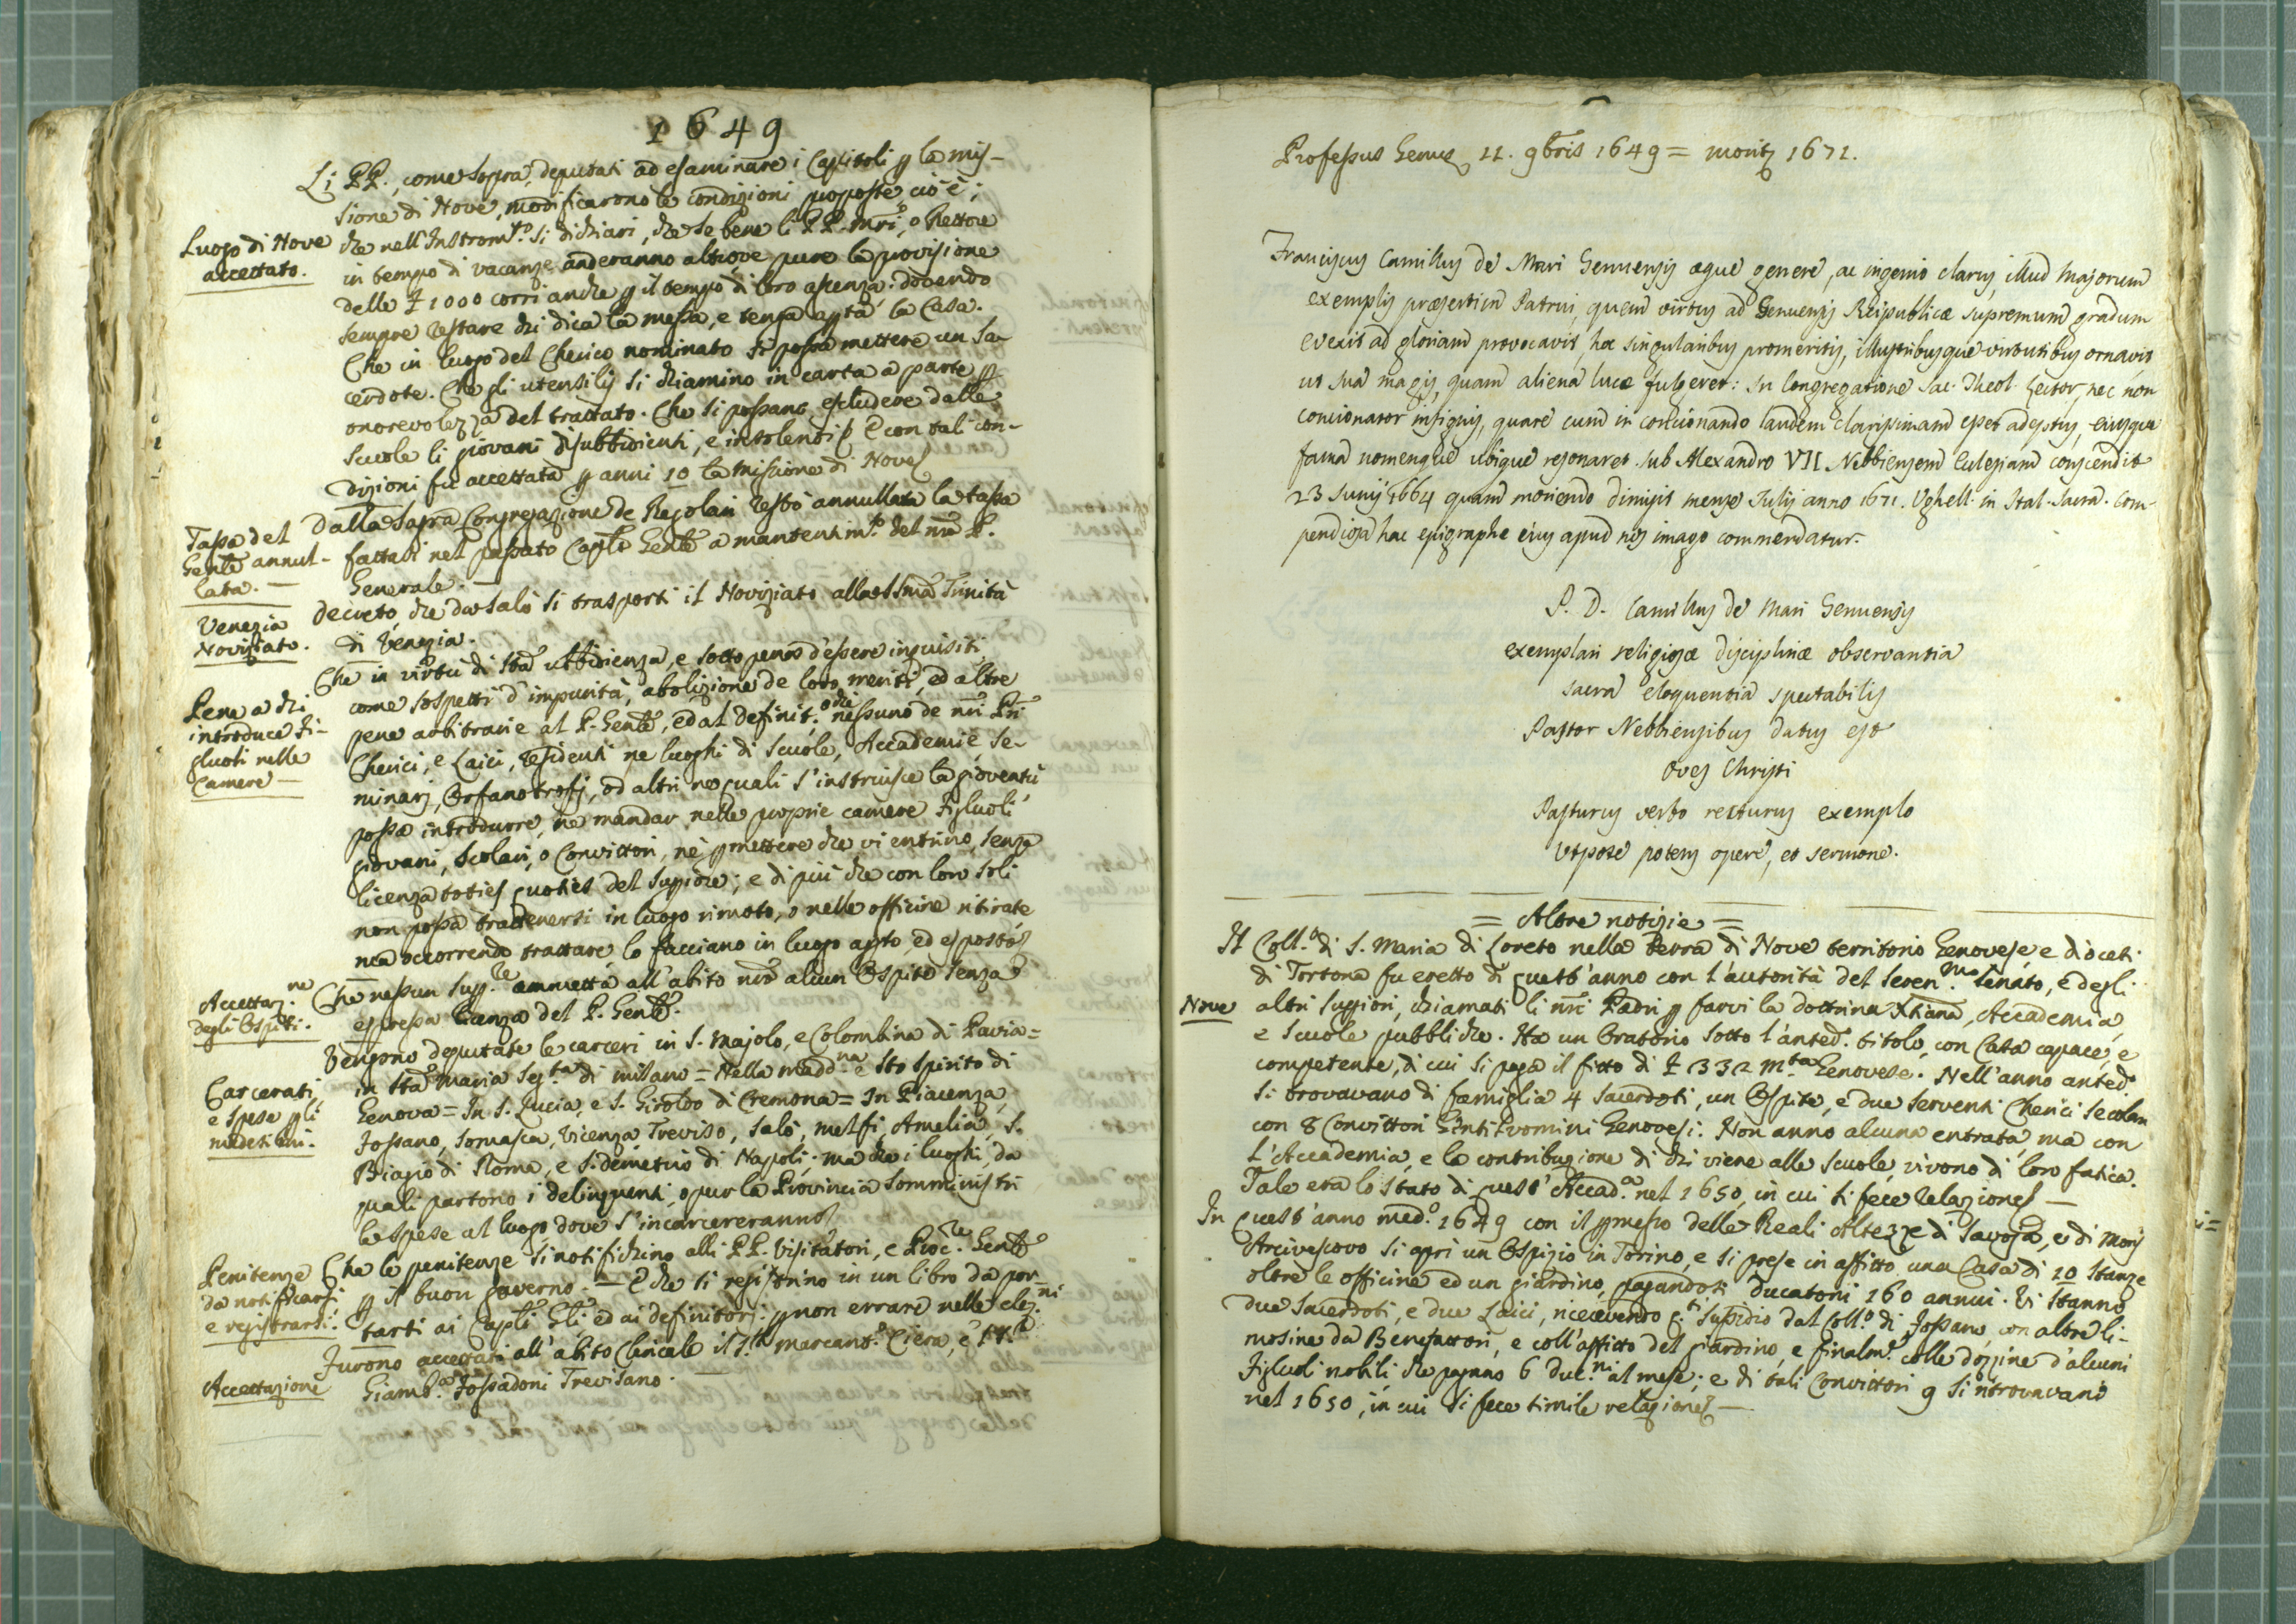 1649
Li PP., come sopra, deputati ad esaminare i Capitoli p la mis-
sione di Nove, modificarono le condizioni proposte cio è;
Luogo di Nove
accettato.
che nell'Instrom.to si dichiari, che se bene li PP. Mri, o Rettore
in tempo di vacanze anderanno altrove pure la provisione
delle £ 1000 corri anche p il tempo di loro assenza: dovendo
sempre restare chi dica la messa, e tenga apta la Casa.
Che in luogo del Cherico nominato si possa mettere un Sa-
cerdote. Che gli utensilj si chiamino in carta a parte p
onorevolezza del trattato. Che si possano escludere dalle
scuole li giovani disubbidienti, e insolenti; E con tali con-
dizioni fu accettata p anni 10 la missione di Nove
Tassa del
Genle annul-
lata. —
Dalla Sagra Congregazione de Regolari restò annullata la tassa
fattasi nel passato Caplo Genle a mantenim.to del nro P.
Generale. —
Venezia
Noviziato.
Decreto, che da Salò si trasporti il Noviziato alla SSma Trinità
di Venezia.
Pena a chi
introduce fi-
gluoli nelle
Camere —
Che in virtù di Sta ubbidienza, e sotto pena d'essere inquisiti
come sospetti d'impurità, abolizione de loro meriti, ed altre
pene arbitrarie al P. Genle, ed al Definit.o che nessuno de nri Pri
Cherici, e Laici, residenti ne luoghi di Scuole, Accademie, Se-
minarj, Orfanotrofj, od altri ne quali s'instruisce la gioventù
possa introdurre, ne mandar nelle proprie camere figluoli
giovani, scolari, o Convittori, nè pmettere che vi entrino, senza
licenza toties quoties del Suppiore; e di più che con loro soli
non possa trattenersi in luogo rimoto, o nelle officine ritirate
ma occorrendo trattare lo facciano in luogo apto, ed esposto
Accettaz.ne
degli Ospiti.
Che nessun Supp.re ammetta all'abito nro alcun Ospite senza
espressa licenza del P. Genle.
Carcerati,
e spese p li
medesimi.
Vengono deputate le carceri in S. Majolo, e Colombina di Pavia =
in Sta Maria Seg.ta di Milano = Nella Madd.na e Sto Spirito di
Genova = In S. Lucia, e S. Giroldo di Cremona = In Piacenza,
Fossano, Somasca, Vicenza, Treviso, Salò, Melfi, Amelia, S.
Biagio di Roma, e S. Demetrio di Napoli; ma che i luoghi, da
quali partono i delinquenti, o pur la Provincia somministri
le spese al luogo dove s'incarcereranno
Penitenze
da notificarsi
e registrarsi.
Che le penitenze si notifichino alli PP. Visitatori, e Proc.re Genle
p il buon governo. — E che si registrino in un libro da por-
tarsi ai Capli Gli, ed ai definitorj p non errare nelle elez.ni
Accettazione
Furono accettati all'abito Clericale il S.r Marcant.o Ciera, e
Giamb.a Fossadoni Trevisano. —
Professus Genuę 11. 9bris 1649 = moritę 1671.
Franciscus Camillus de Mari Genuensis æque genere, ac ingenio clarus, illud majorum
exemplis præsertim Patrui, quem virtus ad Genuensis Reipublicæ supremum gradum
evexit ad gloriam provocavit, hoc singularibus promeritis, illustribusque virtutibus ornavit
ut sua magis, quam aliena luce fulgeret: In Congregatione Sac. Theol. Lector, nec non
concionator insignis, quare cum in concionando laudem clarissimam esset adeptus, eiusque
fama nomenque ubique resonaret sub Alexandro VII Nebbiensem Eclesiam conscendit
23 Junij 1664 quam moriendo dimisit mense Julij anno 1671. Ughell. in Ital. Sacra. Com-
pendiosa hac epigraphe eius apud nos imago commendatur.
P. D. Camillus de Mari Genuensis
exemplari religiosæ disciplinæ observantia
sacra eloquentia spectabilis
Pastor Nebbiensibus datus est
oves Christi
Pasturus verbo recturus exemplo
Utpote potens opere, et sermone.
= Altre notizie =
Il Coll.o di S. Maria di Loreto nella Terra di Nove territorio Genovese, e diocesi
di Tortona fu eretto di quest'anno con l'autorità del Seren.mo Senato, e degli
Nove
altri Suppiori, chiamati li nri Padri p farvi la dottrina Xtiana, Accademia,
e scuole pubbliche. Ha un Oratorio sotto l'anted. titolo, con Casa capace, e
competente, di cui si paga il fitto di £ 332 m.ta Genovese. Nell'anno anted.o
si trovavano di famiglia 4 Sacerdoti, un Ospite, e due serventi Cherici secolari
con 8 Convittori Gintiluomini Genovesi. Non anno alcuna entrata, ma con
l'Accademia, e la contribuzione di chi viene alle Scuole, vivono di loro fatica.
Tale era lo stato di quest'Accad.a nel 1650, in cui si fece relazione —
In quest'anno med.o 1649 con il pmesso delle Reali Altezze di Savoja, e di Mons
Arcivescovo si aprì un Ospizio in Torino, e si prese in affitto una Casa di 10 stanze
oltre le officine ed un giardino, pagandosi Ducatoni 160 annui. Vi stanno
due Sacerdoti, e due Laici, ricevendo q.ti sussidio dal Coll.o di Fossano, con altre li-
mosine da Benefattori, e coll'affitto del giardino, e finalm.e colle dozzine d'alcuni
figluoli nobili, che pagano 6 duc.ni al mese; e di tali Convittori 9 si ritrovavano
nel 1650, in cui si fece simile relazione —